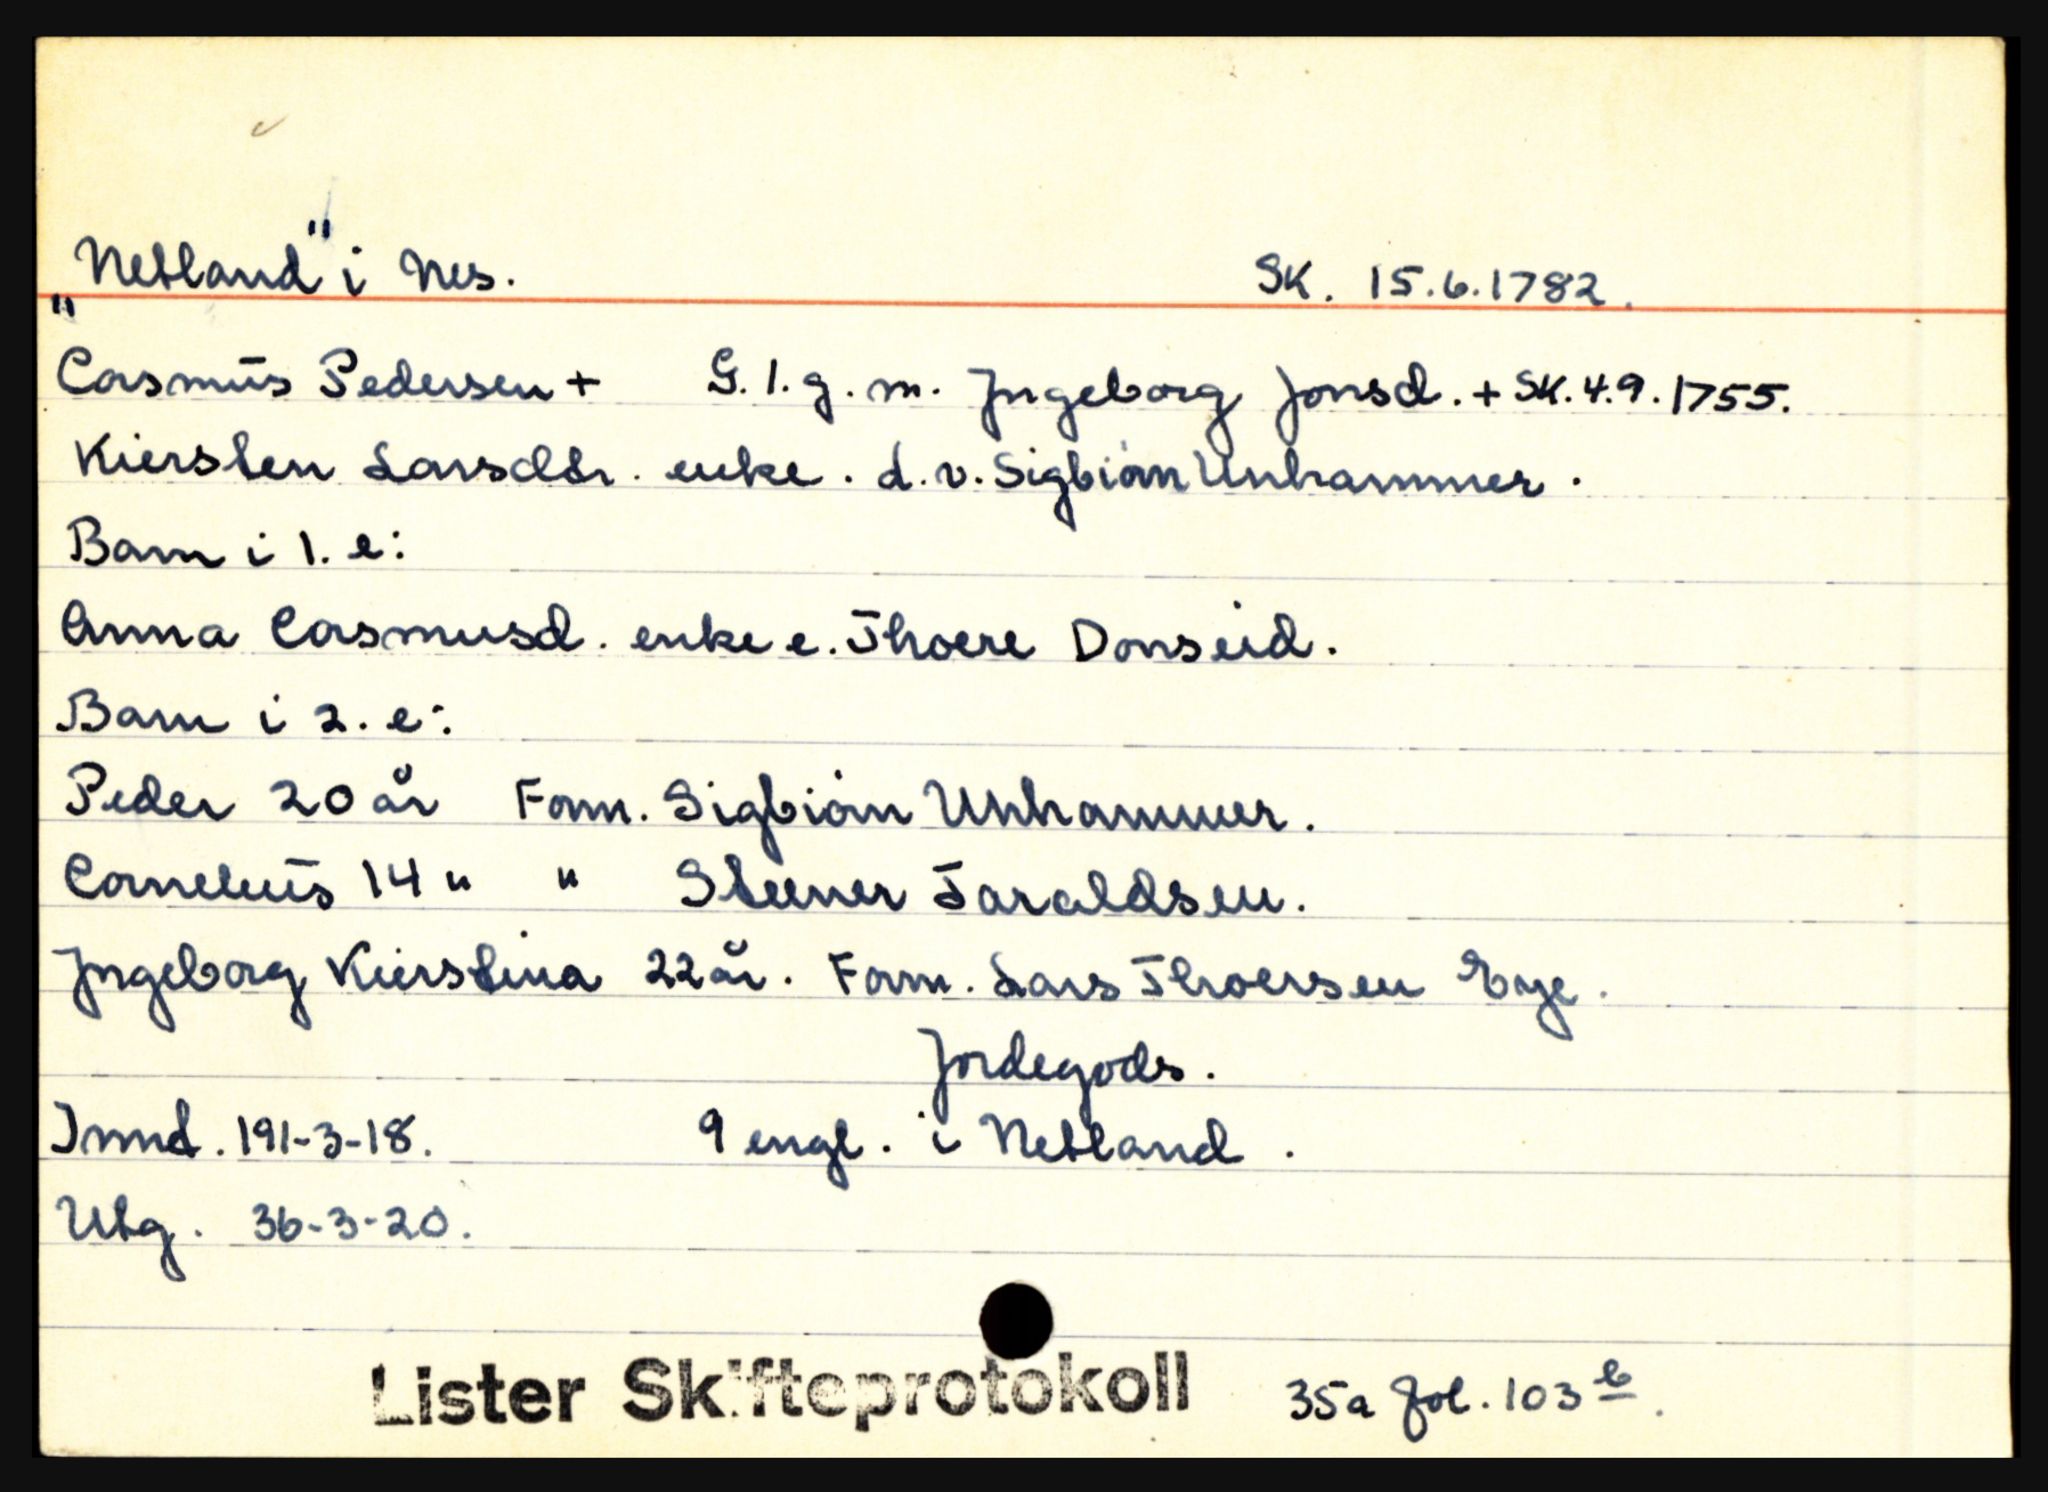 "Netland" i Nes. SK. 15.6.1782.
Casmus Pedersen + G. 1. g. m. Jngeborg Jonsd. + SK. 4.9.1755.
Kiersten Larsdtr. enke. d. v. Sigbiörn Unhammer.
Barn i 1. e:
Anna Casmusd. enke e. Thoere Donseid.
Barn i 2. e:
Peder 20 år Form. Sigbiörn Unhammer.
Cornelius 14 " " Steener Taraldsen.
Jngeborg Kierstina 22 år. Form. Lars Thoersen Eye.
Jordegods.
Innd. 191-3-18. 9 engl. i Netland.
Utg. 36-3-20.
Lister Skifteprotokoll 35a fol. 103 b.